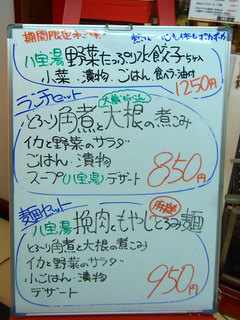 期間限定
八宝湯 野菜たっぷり水餃子
小菜・漬物・ごはん・食べラー油付
1250円
ランチセット
とろ〜り角煮と大根の煮こみ
イカと野菜のサラダ
ごはん・漬物
スープ(八宝湯) デザート
850円
麺セット
八宝湯 挽肉ともやしとろみ麺
とろ〜り角煮と大根の煮こみ
イカと野菜のサラダ
小ごはん・漬物
デザート
950円